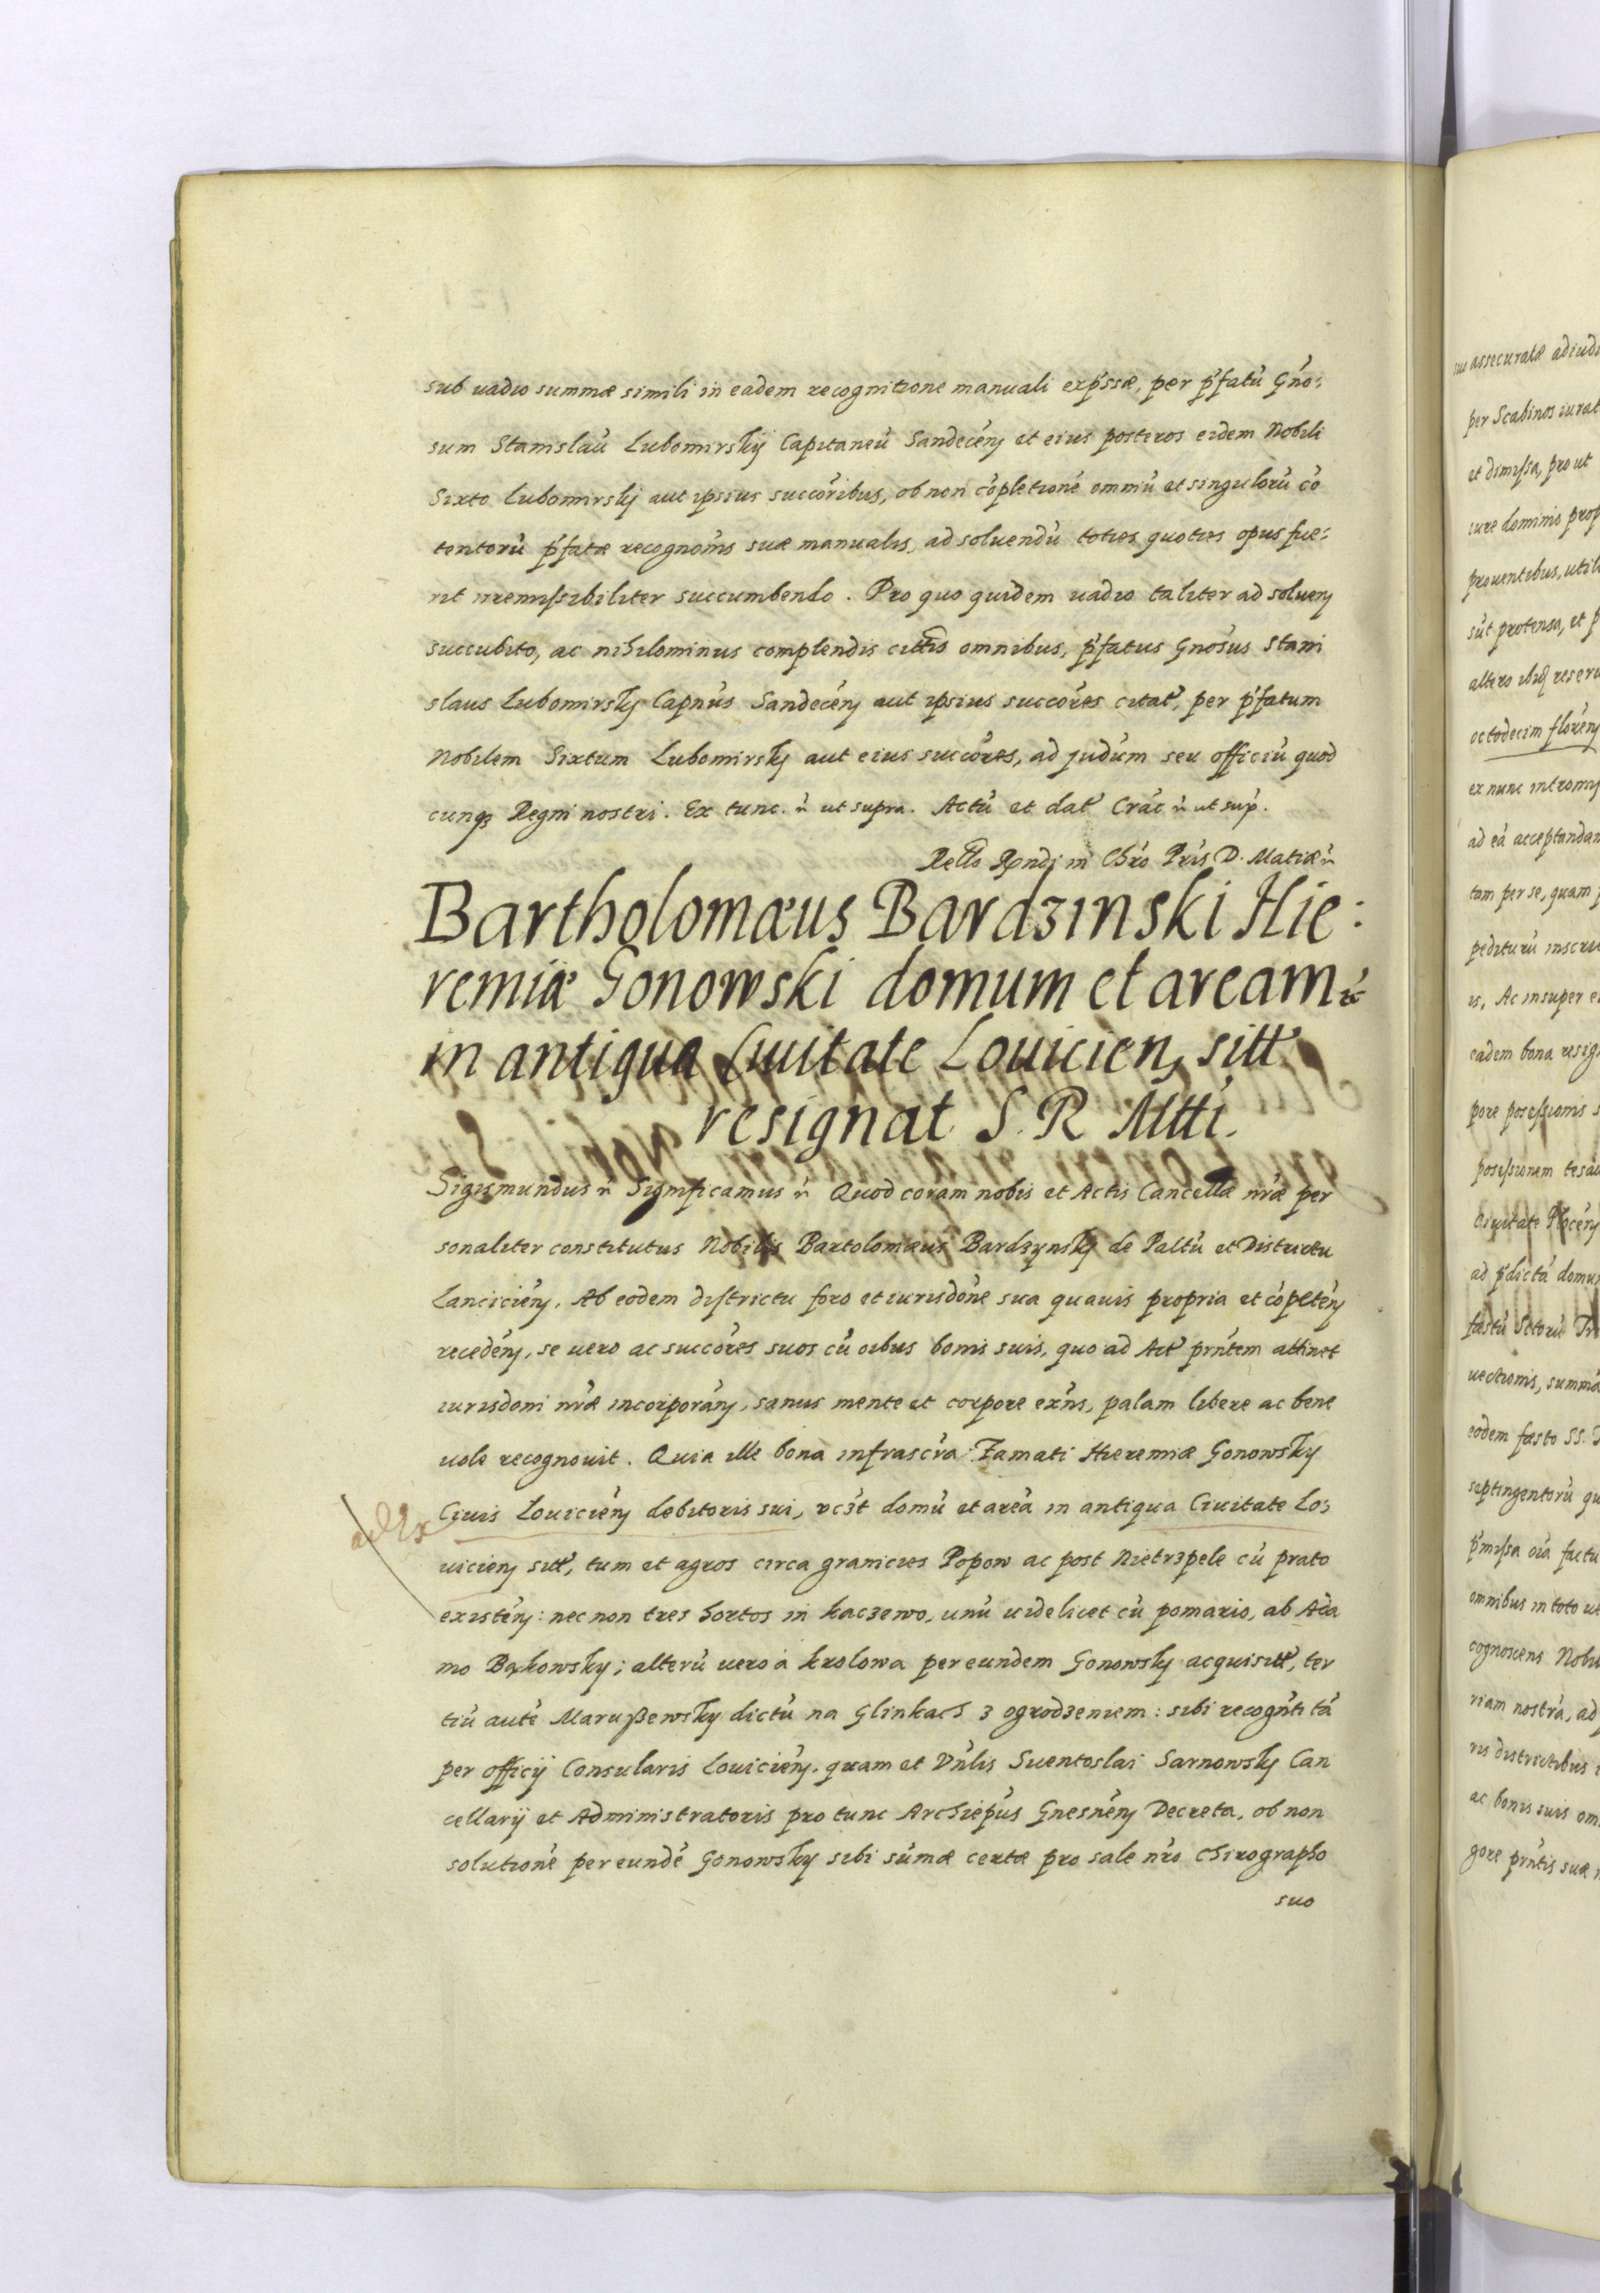 sub uadio summæ simili in eadem recognitione manuali exp̃ssæ, per p̃fatũ Gño:
sum Stanislaũ Lubomirskỹ Capitaneũ Sandeceñ et eius posteros eidem Nobili
Sixto Lubomirsky aut ipsius succoribus, ob non cõpletionẽ omniũ et singulorũ cõ
tentorũ p̃fatæ recognoĩs suæ manualis, ad soluendũ toties quoties opus fue:
rit irremissibiliter succumbendo. Pro quo quidem uadio taliter ad solueñ
succubito, ac nihilominus complendis citis omnibus, p̃fatus Gnosus Stani
slaus Lubomirsky Capnũs Sandeceñ aut ipsius succõres citat̃, per p̃fatum
Nobilem Sixtum Lubomirsky aut eius succõres, ad judũm seu officiũ quod
cunq3 Regni nostri. Ex tunc. ut supra. Actũ et dat̃ Crac̃ ut sup̃.
Rello Rndi in Chrõ Pris D. Matiæ
Bartholomæus Bardzinski Hie:
remiæ Gonowski domum et aream
in antiqua Ciuitate Louicien, sitt̃
resignat S. R Mtti.
Sigismundus Significamus Quod coram nobis et Actis Cancellæ nr̃æ per
sonaliter constitutus Nobilis Bartolomæus Bardzynsky de Paltũ et Districtu
Lancicieñ, Ab eodem districtu foro et iurisdõne sua quauis propria et cõpeteñ
recedeñ, se uero ac succõres suos cũ oibus bonis suis, quo ad Act̃ prñtem attinet
iurisdoni nr̃æ incorporañ, sanus mente et corpore exñs, palam libere ac bene
uole recognouit. Quia ille bona infrascrã Famati Hieremiæ Gonowsky
Ciuis Louicieñ debitoris sui, vc3t domũ et areã in antiqua Ciuitate Lo:
uicieñ sitt̃, tum et agros circa granicies Popow ac post Nietrzpele cũ prato
existeñ: nec non tres hortos in Kaczewo, unũ uidelicet cũ pomario, ab Ada
mo Bąkowsky; alterũ uero à Krolowa per eundem Gonowsky acquisitt̃, ter
tiũ autẽ Marußewsky dictũ na Glinkach z ogrodzeniem: sibi recognti tã
per officij Consularis Louicieñ. quam et Vñlis Suentoslai Sarnowsky Can
cellarij et Administratoris pro tunc Archiepũs Gnesneñ Decreta, ob non
solutionẽ per eundẽ Gonowsky sibi sũmæ certæ pro sale nr̃o chirographo
suo